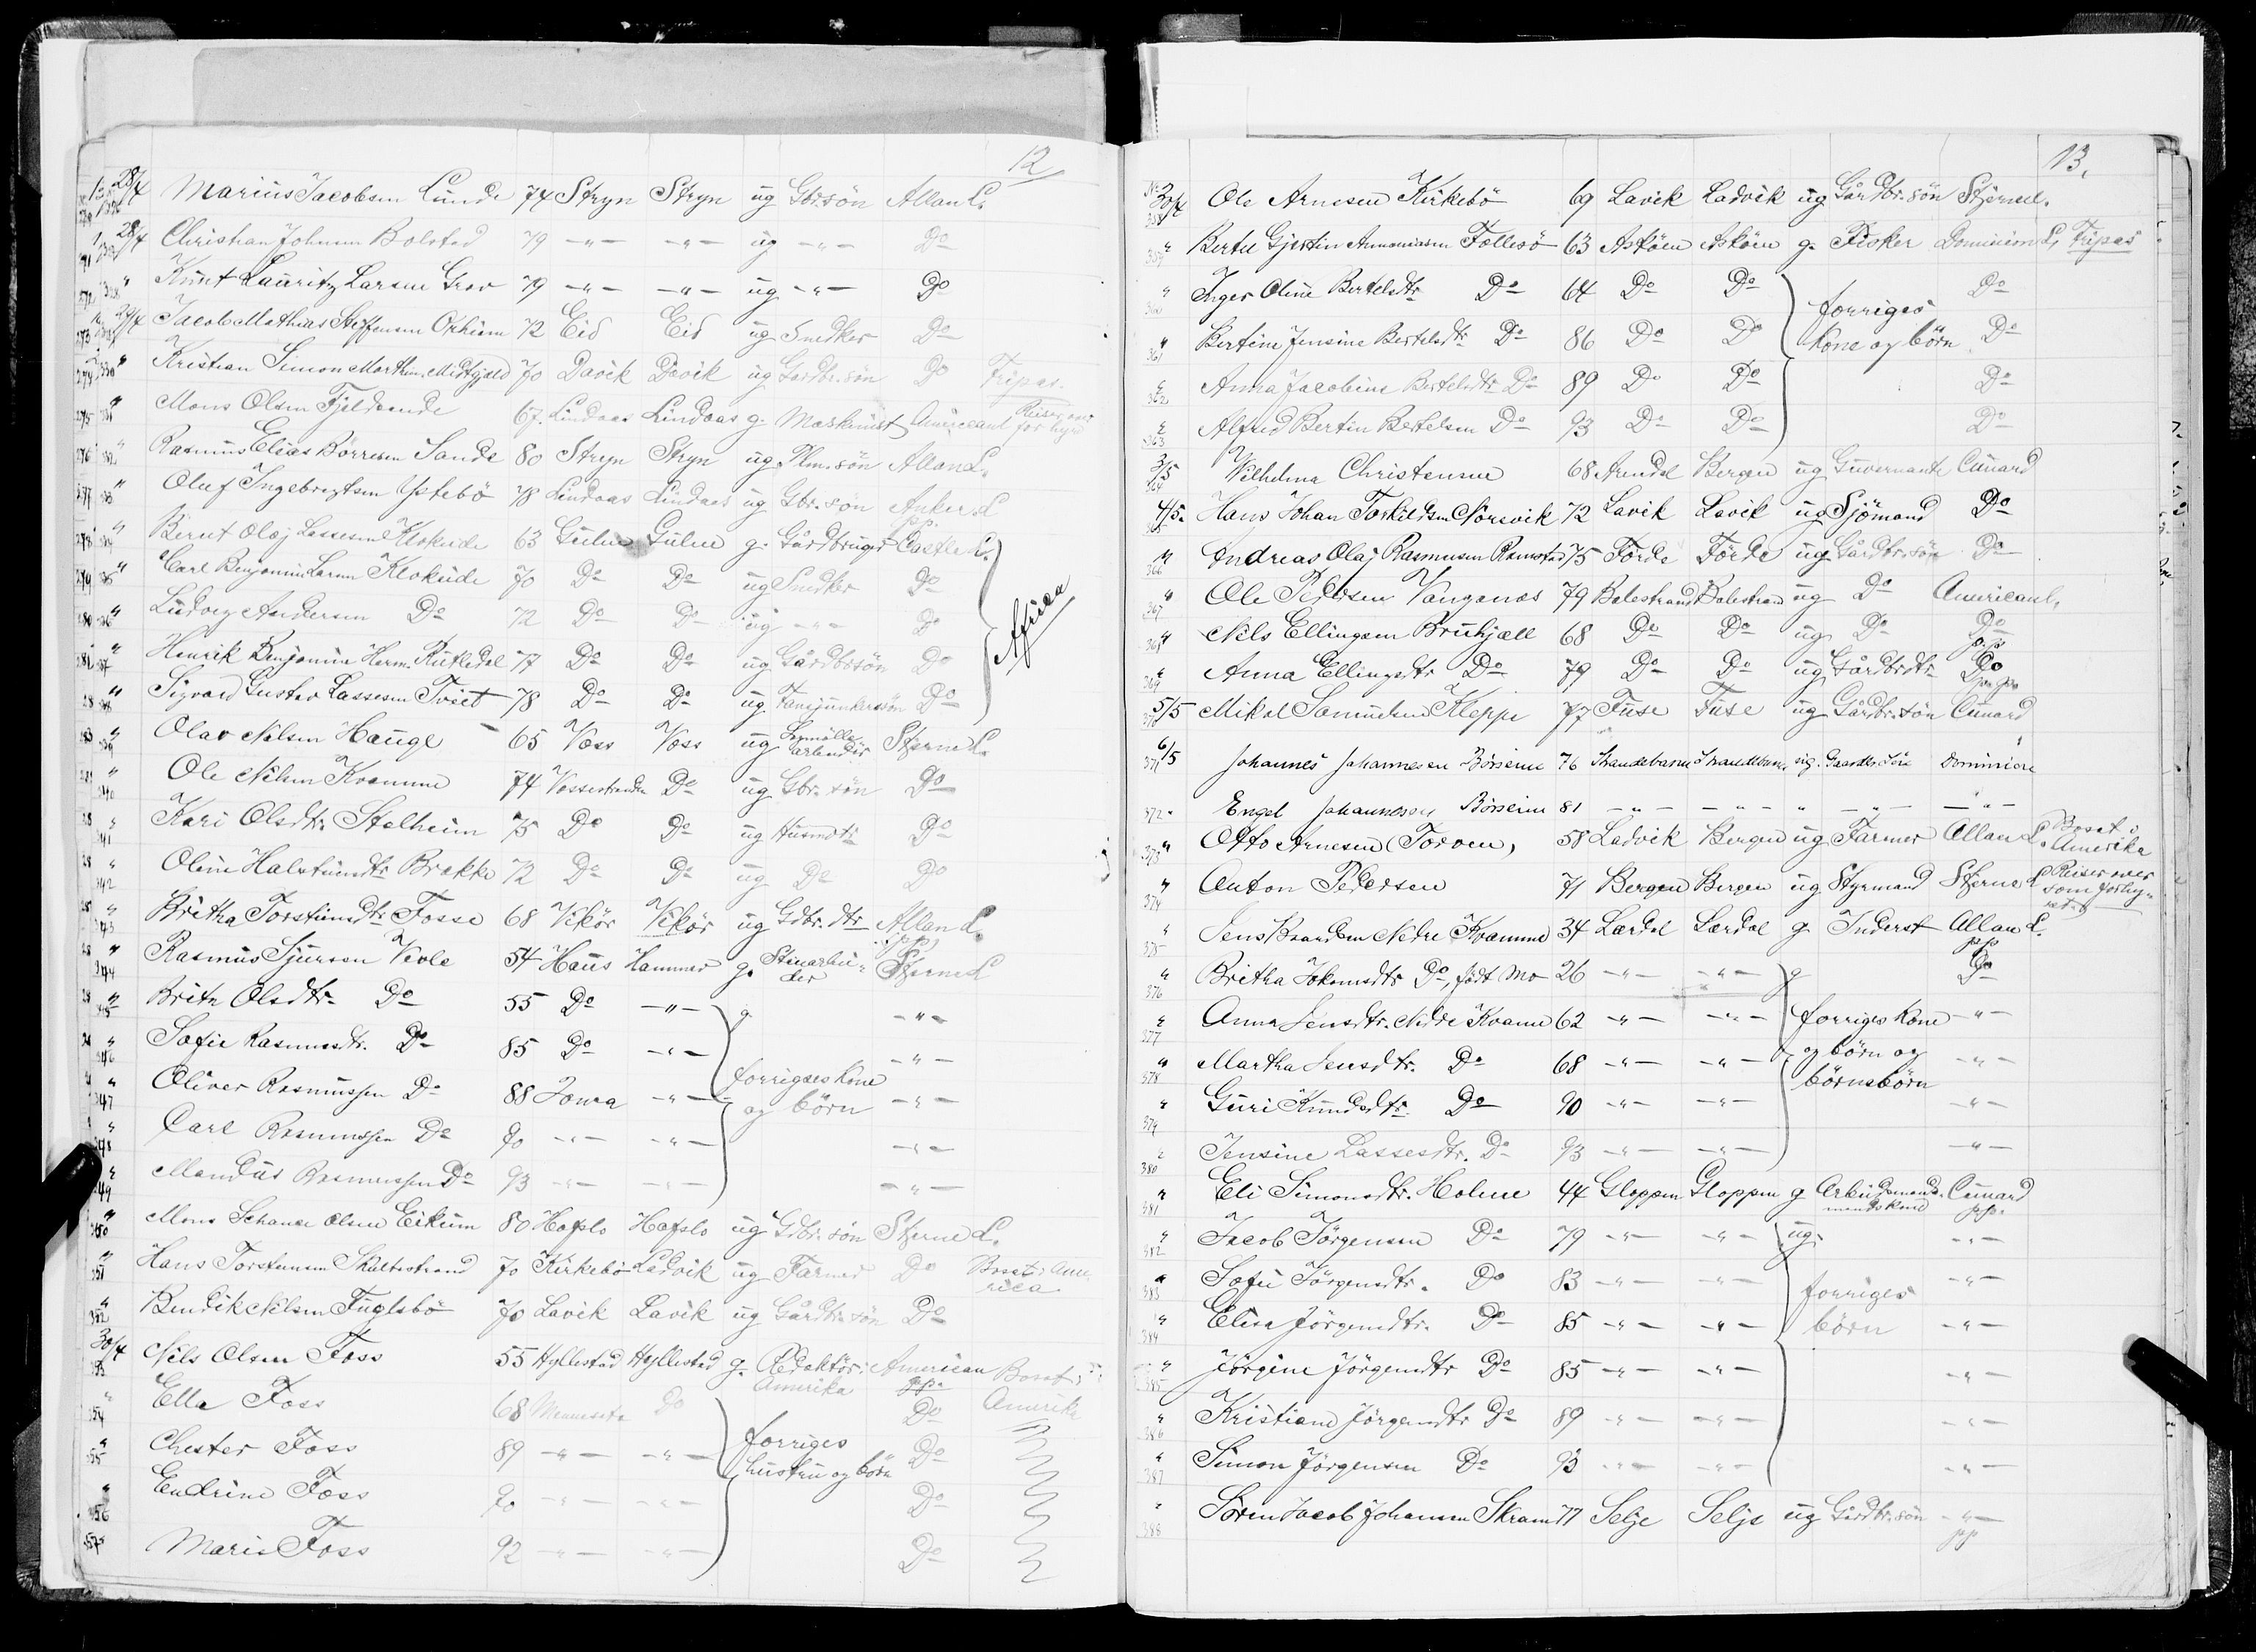 12
28/4 Marius Jacobsen Lunde 74 Stryn Stryn ug Gbr.sön Allan L.
28/4 Christian Johnsen Bolstad 79 -"- -"- ug -"- Do
" Knut Lauritz Larsen Grov 79 -"- -"- ug -"- Do
29/4 Jacob Mathias Steffensen Orheim 72 Eid Eid ug Snedker Do
" Kristian Simon Marthin. Midtgjæld 70 Davik Davik ug Gårdbr.sön Do Fripas.
" Mons Olsen Fjeldsende 67. Lindaas Lindaas g. Maskinist American L
" Rasmus Elias Börresen Sande 80 Stryn Stryn ug Plm.sön Allan L.
" Oluf Ingebregtsen Ystebö 78 Lindaas Lindaas ug Gbr.sön Anker L
" Berent Olaj Lassesen Klokeide 63 Gulen Gulen g. Gårdbruger Castle L.
" Carl Benjamin Larsen Klokeide 70 Do Do ug Snedker Do
" Ludvig Andersen Do 72 Do Do ug -"- Do
Africa
" Henrik Benjamin Herm. Rutledal 77 Do Do ug Gårdbrsön Do
" Sigvard Gustav Lassesen Tveit 78 Do Do ug Fanejunkersön Do
" Olav Nilsen Hauge 65 Voss Voss ug arbeider Stjerne L.
" Ole Nilsen Kvamme 74 Vossestranden Do ug Gbr.sön Do
" Kari Olsdtr. Stalheim 75 Do Do ug Husmdtr Do
" Oline Halstensdtr Brække 72 Do Do ug Do Do
" Britha Torsteinsdtr Fosse 68 Vikör Vikör ug Gdbr.dtr Allan L.
p.p.
" Rasmus Sjursen Veole 54 Haus Hammer g. Stenarbeider Stjerne L
" Brita Olsdtr. Do 55 Do -"- g. -"-
" Sofie Rasmusdtr. Do 85 Do -"- -"-
" Oliver Rasmussen Do 88 Iowa -"- forriges kone og börn -"-
" Carl Rasmussen Do 90 -"- -"- -"-
" Mandus Rasmussen Do 93 -"- -"- -"-
" Mons Schanse Olsen Eikum 80 Hafslo Hafslo ug Gdbr.sön Stjerne L.
" Hans Torstensen Skaltestrand 70 Kirkebö Ladvik ug Farmer Do Bosat i America
" Bendik Nilsen Fuglsbö 70 Lavik Lavik ug Gårdbr.sön Do
30/4 Nils Olsen Foss 55 Hyllestad Hyllestad g. Redaktör i Amerika American p.p. Bosat i Amerika
" Ella Foss 68 Minnesota Do Do
" Chester Foss 89 -"- -"- forriges hustru og börn Do
" Endrine Foss 90 -"- -"- Do
" Marie Foss 92 -"- -"- Do
13.
30/4 Ole Arnesen Kirkebö 69 Lavik Ladvik ug Gårdbr.sön Stjernel.
" Bertel Gjertin Annaniasen Follesö 63 Asköen Asköen g. Fisker Dominion L, Fripas
" Inger Oline Bertelsdtr Do 64 Do Do Do
" Bertine Jensine Bertelsdtr Do 86 Do Do forriges kone og börn Do
" Anna Jacobine Bertelsdtr Do 89 Do Do Do
" Alfred Bertin Bertelsen Do 93 Do Do Do
3/5 Vilhelma Christensen 68 Arendal Bergen ug Guvernante Cunard
4/5. Hans Johan Torkildsen Norevik 72 Lavik Lavik ug Sjömand Do
" Andreas Olaj Rasmussen Ramstad 75 Förde Förde ug Gårdbr.sön Do
" Ole Pedersen Vangsnæs 79 Balestrand Balestrand ug Do Americanl,
" Nils Ellingsen Bruhjell 68 Do Do ug Do Do
p.p.
" Anna Ellingsdtr Do 79 Do Do ug Gårdbrdtr Do
p.p.
5/5 Mikal Samuelsen Kleppe 77 Fuse Fuse ug Gårdbr.sön Cunard
6/5 Johannes Johannesen Börseim 76 Strandebarm Strandebarm ug. Gaardbr.sön Dominion
Engel Johannesen Börseim 81 -"- -"- " -"- -"-
" Otto Arnesen (Torven) 58 Ladvik Bergen ug Farmer Allan L. Bosat i Amerika
" Anton Pedersen 71 Bergen Bergen ug Styrmand Stjerne L Reiser over som forhyret
" Jens Brandsen Nedre Kvamme 34 Lærdal Lærdal g Inderst Allan L.
p.p.
" Britha Johansdtr Do, födt Mo 26 -"- -"- g Do
" Anna Jensdtr. Nedre Kvamme 62 -"- -"- forriges kone -"-
" Martha Jensdtr. Do 68 -"- -"- og börn og börnebörn -"-
" Guri Knudsdtr. Do 90 -"- -"- -"-
" Jensine Lassesdtr. Do 93 -"- -"- -"-
" Eli Simonsdtr. Holme 44 Gloppen Gloppen g Cunard
p.p.
" Jacob Jörgensen Do 79 -"- -"- ug. -"-
" Sofie Jörgensdtr. Do 83 -"- -"- forriges -"-
" Elisa Jörgensdtr. Do 85 -"- -"- börn -"-
" Jörgine Jörgensdtr Do 85 -"- -"- -"-
" Kristiane Jörgensdtr Do 89 -"- -"- -"-
" Simon Jörgensen Do 93 -"- -"- -"-
" Sören Jacob Johansen Skram 77 Selje Selje ug Gårdbr.sön -"-
p.p.